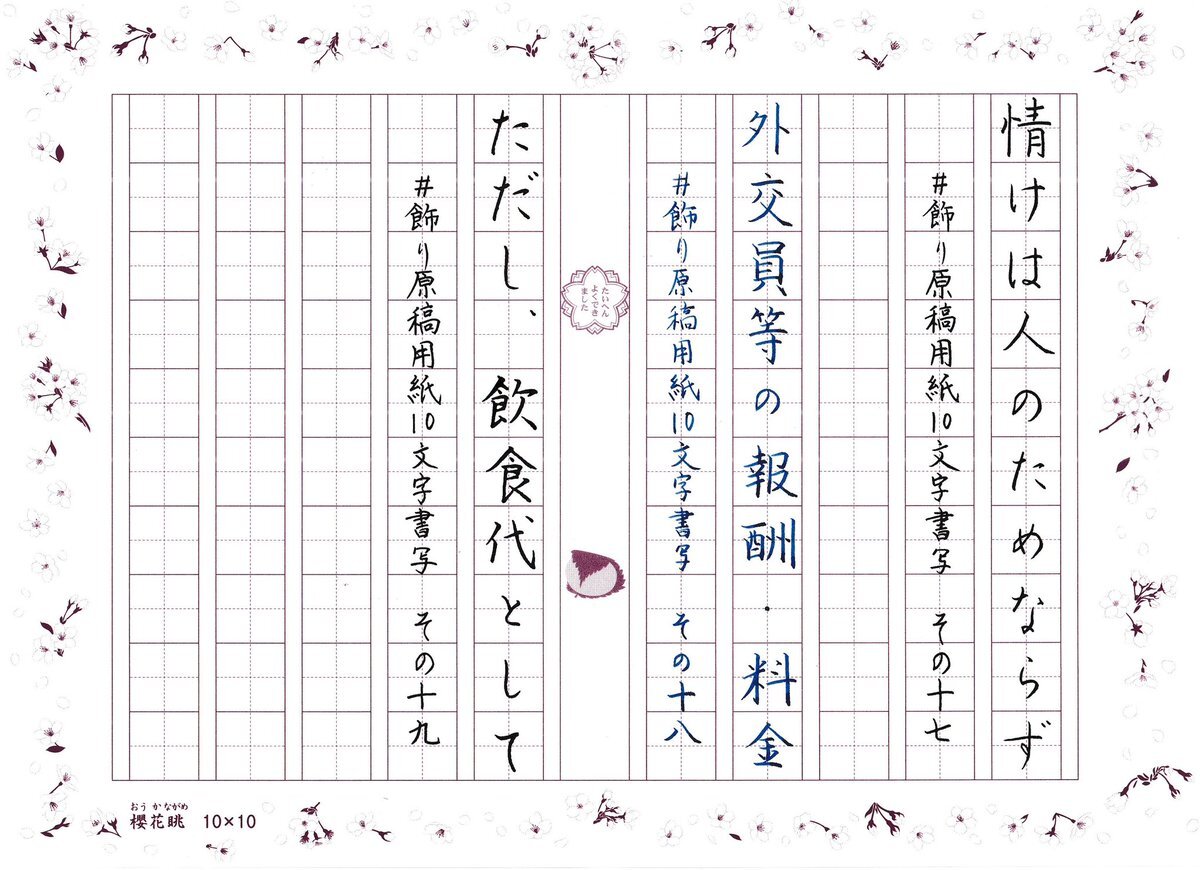 情けは人のためならず
#飾り原稿用紙10文字書写　その十七
外交員等の報酬・料金
#飾り原稿用紙10文字書写　その十八
たいへん
よくでき
ました
ただし、飲食代として
#飾り原稿用紙10文字書写　その十九
おうかながめ
櫻花眺　10×10